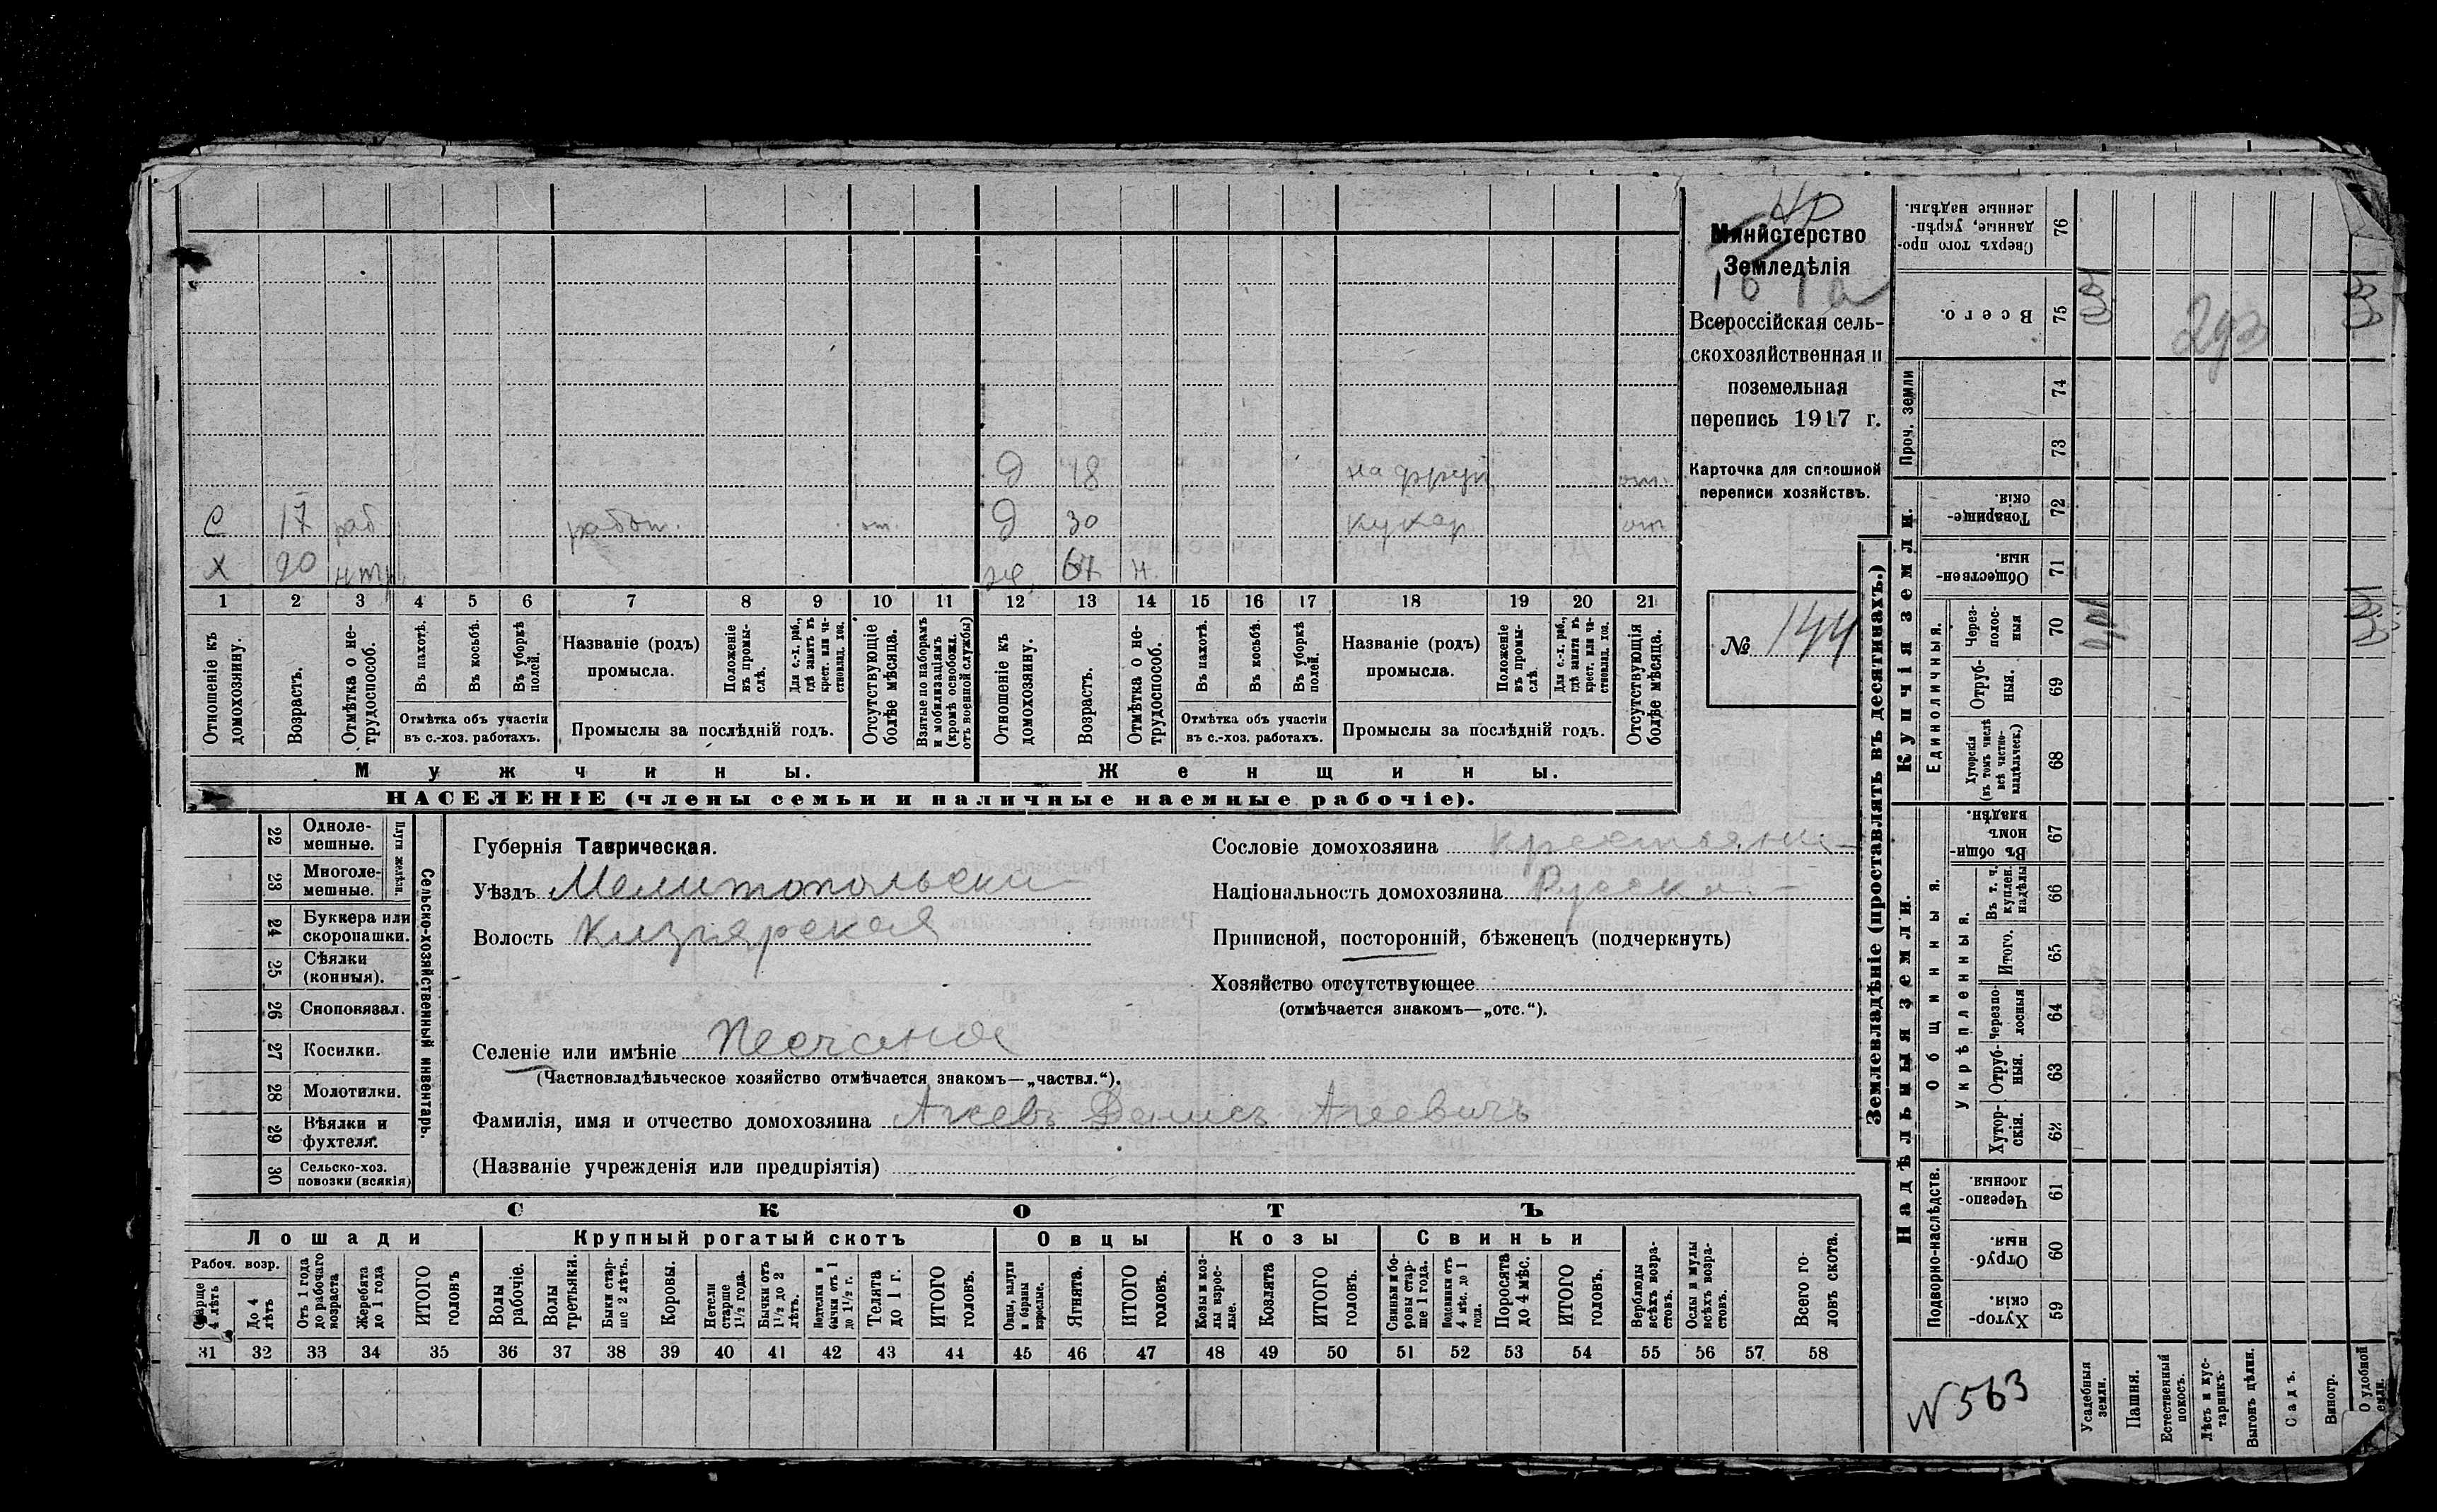 Министерство
Земледѣлія
Всероссійская сель-
скохозяйственная и
поземельная
перепись 1917 г.
Карточка для сплошной
переписи хозяйствъ.
№ 144
д 18
от.
С 17 раб работ. от. д 30 кухар от
Х 67 н.
1 2 3 4 5 6 7 8 9 10 11 12 13 14 15 16 17 18 19 20 21
Отношеніе къ
домохозяину.
Возрастъ.
Отмѣтка о не-
трудоспособ.
Въ пахотѣ.
Въ косьбѣ.
Въ уборкѣ
полей.
Отмѣтка объ участіи
въ с.-хоз. работахъ.
Названіе (родъ)
промысла.
Положеніе
въ промы-
слѣ.
Для с.-х. раб.,
гдѣ занятъ въ
крест. или ча-
стновлад. хоз.
Промыслы за послѣдній годъ.
Отсутствующіе
болѣе мѣсяца.
Взятые по наборамъ
и мобилизаціямъ
(кромѣ освобожд.
отъ военной службы)
Отношеніе къ
домохозяину.
Возрастъ.
Отмѣтка о не-
трудоспособ.
Въ пахотѣ.
Въ косьбѣ.
Въ уборкѣ
полей.
Отмѣтка объ участіи
въ с.-хоз. работахъ.
Названіе (родъ)
промысла.
Положеніе
въ промы-
слѣ.
Для с.-х. раб.,
гдѣ занята въ
крест. или ча-
стновлад. хоз.
Промыслы за послѣдній годъ.
Отсутствующія
болѣе мѣсяца.
Мужчины.
Женщины.
НАСЕЛЕНІЕ (члены семьи и наличные наемные рабочіе).
22 Одноле-
мешные.
23 Многоле-
мешные.
Плуги желѣзн.
24 Буккера или
скоропашки.
25 Сѣялки
(конныя).
26 Сноповязал.
27 Косилки.
28 Молотилки.
29 Вѣялки и
фухтеля.
30 Сельско-хоз.
повозки (всякія)
Сельско-хозяйственный инвентарь.
Губернія Таврическая.
Уѣздъ Мелитопольски
Волость Кизіярская
Сословіе домохозяина крестьянин
Національность домохозяина Русск
Приписной, посторонній, бѣженецъ (подчеркнуть)
Хозяйство отсутствующее
(отмѣчается знакомъ—„отс.“).
Селеніе или имѣніе Песчаное
(Частновладѣльческое хозяйство отмѣчается знакомъ—„частвл.“).
Фамилія, имя и отчество домохозяина Агеевъ Денисъ Агеевичъ
(Названіе учрежденія или предпріятія)
СКОТЪ
Лошади
Крупный рогатый скотъ
Овцы
Козы
Свиньи
Рабоч. возр.
Старще
4 лѣтъ
До 4
лѣтъ
Отъ 1 года
до рабочаго
возраста
Жеребята
до 1 года
ИТОГО
головъ
Волы
рабочіе.
Волы
третьяки.
Быки стар-
ше 2 лѣтъ.
Коровы.
Нетели
старше
1½ года.
Бычки отъ
1½ до 2
лѣтъ.
Подтелки и
бычки отъ 1
до 1½ г.
Телята
до 1 г.
ИТОГО
головъ.
Овцы, валухи
и бараны
взрослые.
Ягнята.
ИТОГО
головъ.
Козы и коз-
лы взрос-
лые.
Козлята
ИТОГО
головъ.
Свиньи и бо-
ровы стар-
ше 1 года.
Подсвинки отъ
4 мѣс. до 1
года.
Поросята
до 4 мѣс.
ИТОГО
головъ.
Верблюды
всѣхъ возра-
стовъ.
Ослы и мулы
всѣхъ возра-
стовъ.
Всего го-
ловъ скота.
31 32 33 34 35 36 37 38 39 40 41 42 43 44 45 46 47 48 49 50 51 52 53 54 55 56 57 58
Землевладѣніе (проставлять въ десятинахъ.)
Надѣльныя земли.
Купчія земли.
Проч. земли
Подворно-наслѣдств.
Общинныя.
Укрѣпленныя.
Единоличныя.
Сверхъ того про-
данные, укрѣп-
ленные надѣлы.
76
Всего.
75
74
73
Товарище-
скія.
72
Обществен-
ныя.
71
Через-
полос-
ныя
70
Отруб-
ныя.
69
Хуторскія
(въ томъ числѣ
всѣ частно-
владѣльческ.)
68
Въ общин-
номъ
владѣн.
67
Въ т. ч.
куплен.
надѣлы
66
Итого.
65
Черезпо-
лосныя
64
Отруб-
ныя.
63
Хутор-
скія.
62
Черезпо-
лосныя.
61
Отруб-
ныя.
60
Хутор-
скія.
59
N 563
Усадебныя
земли.
Пашня.
Естественный
покосъ.
Лѣсъ и кус-
тарникъ.
Выгонъ цѣлин.
Садъ.
Виногр.